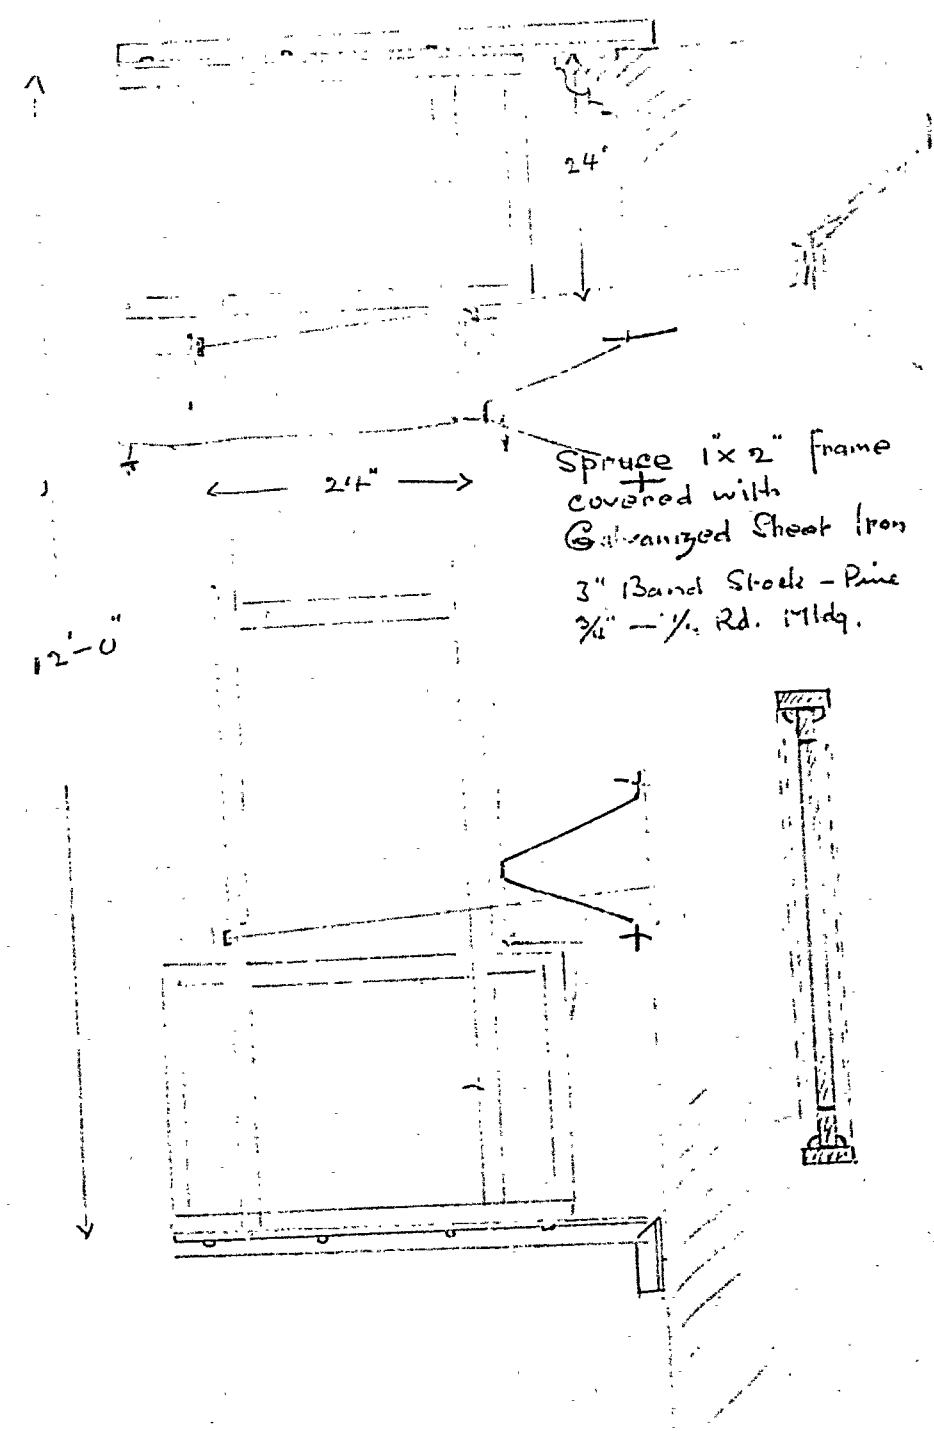 24"
24"
Spruce 1"x 2" frame
covered with
Galvanized Sheet Iron
3" Band Stock - Pine
3/4" - Rd. Mldg.
12'-0"